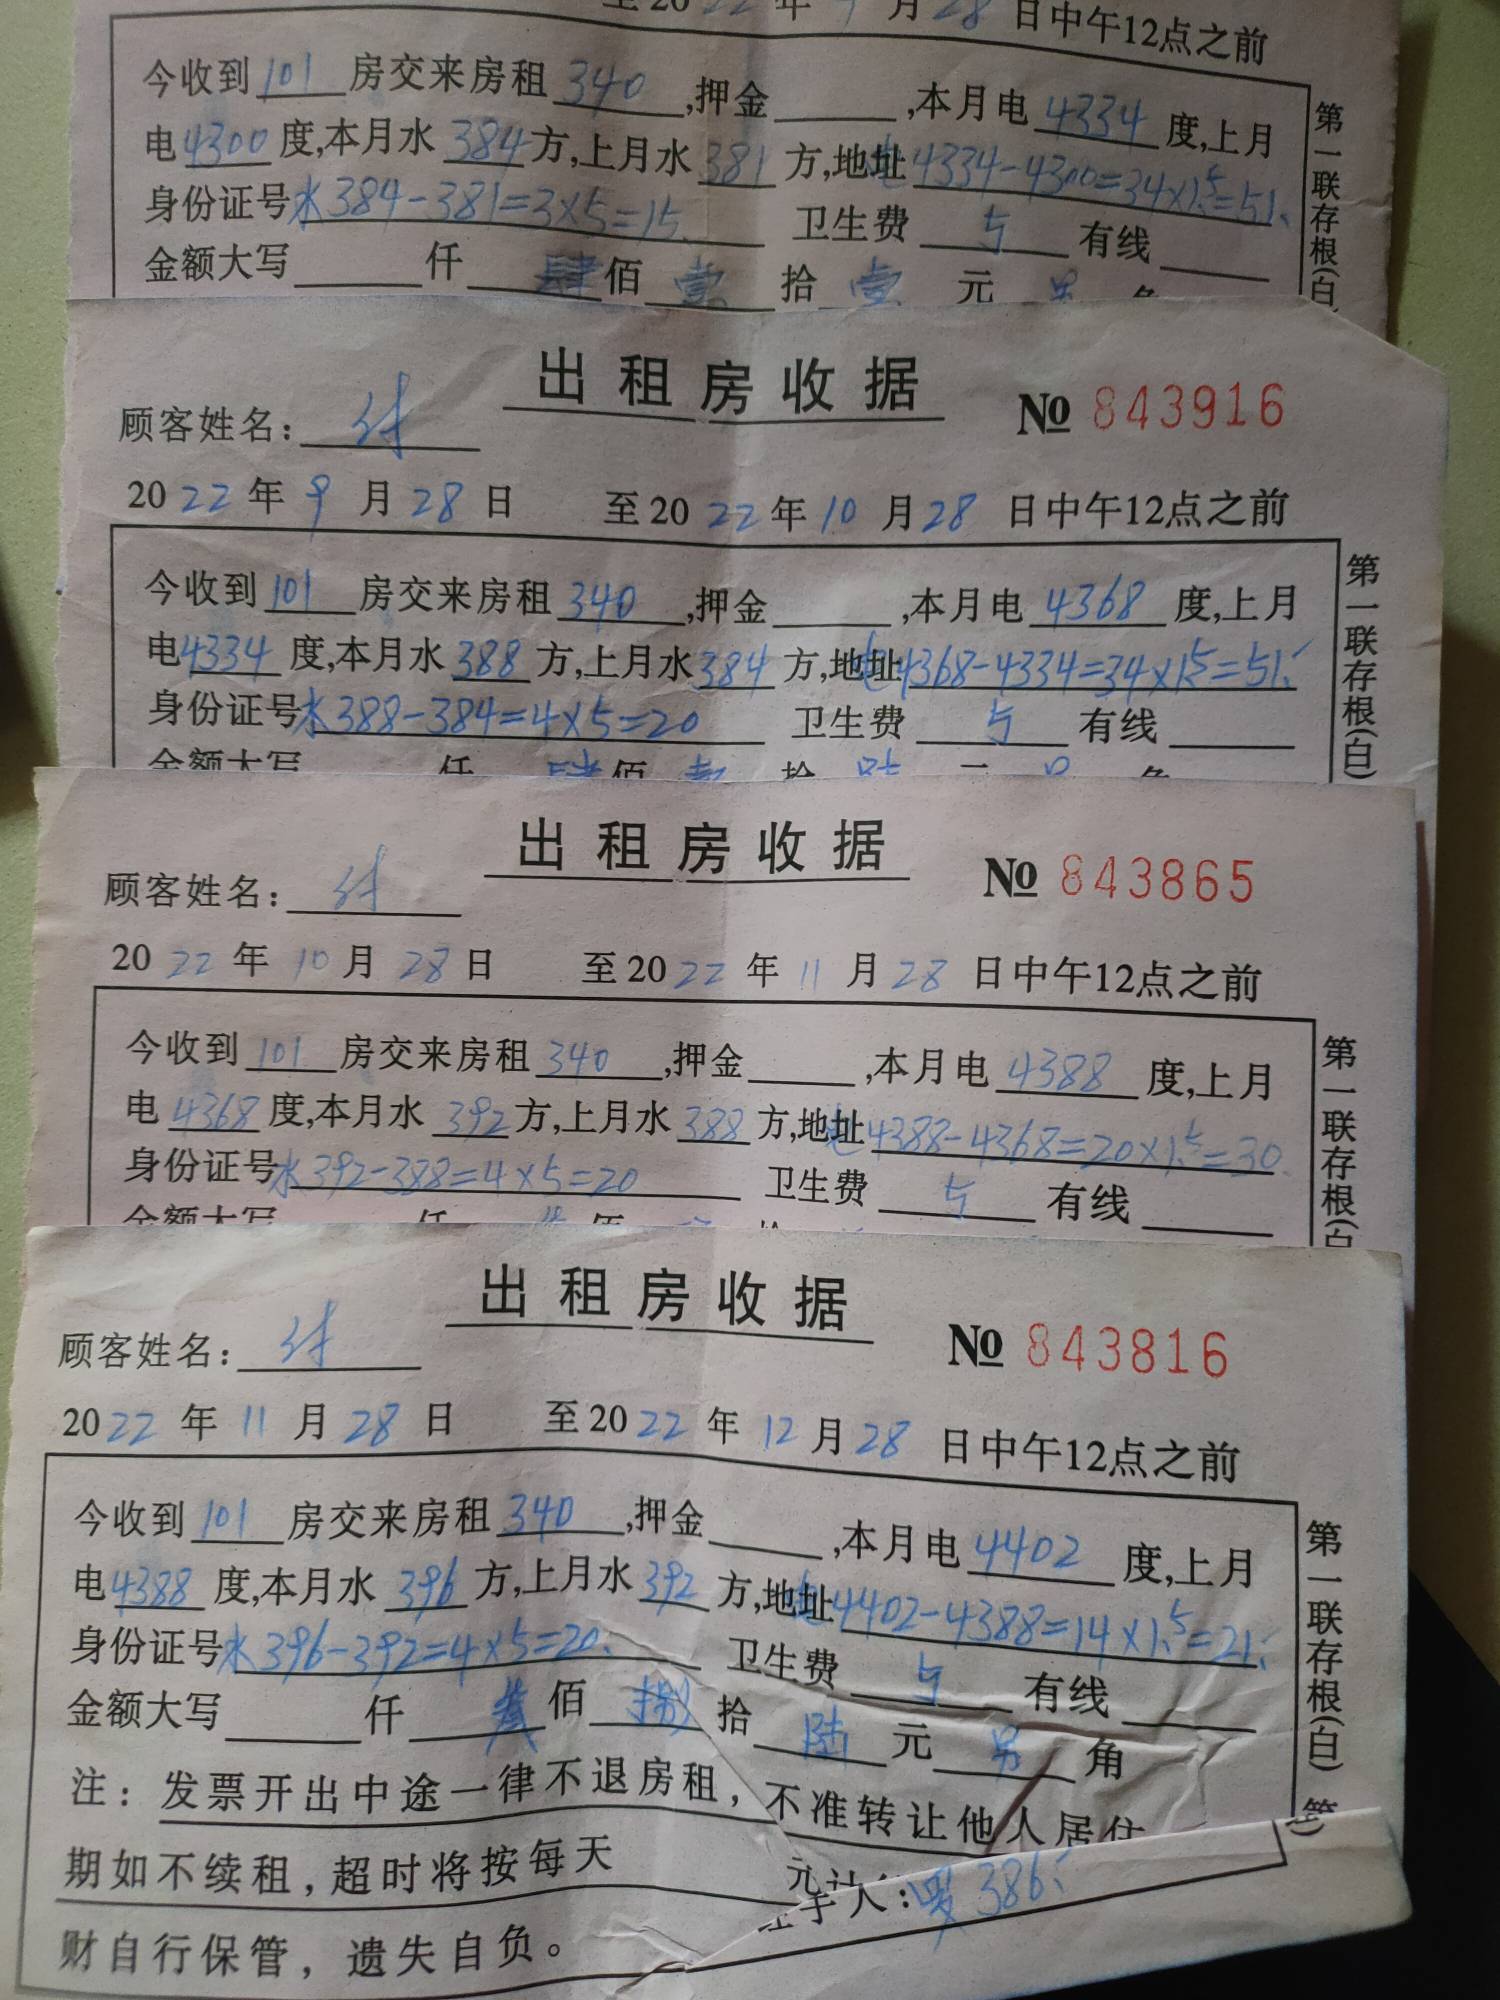 至2022年9月28日中午12点之前
今收到101房交来房租340,押金 ,本月电4334度,上月
电4300度,本月水384方,上月水381方,地址电4334-4300=34×1.5=51.
身份证号水384-381=3×5=15. 卫生费 5 有线
金额大写 仟 肆佰 壹 拾 壹 元 另 角
第一联存根(白
出租房收据
顾客姓名: № 843916
2022年9月28日 至2022年10月28日中午12点之前
今收到101房交来房租340,押金 ,本月电4368度,上月
电4334度,本月水388方,上月水384方,地址电4368-4334=34×1.5=51.
身份证号水388-384=4×5=20 卫生费 5 有线
金额大写 仟 肆佰 壹 拾 陆 元 另 角
第一联存根(白)
出租房收据
顾客姓名: № 843865
2022年10月28日 至2022年11月28日中午12点之前
今收到101房交来房租340,押金 ,本月电4388度,上月
电4368度,本月水392方,上月水388方,地址电4388-4368=20×1.5=30.
身份证号水392-388=4×5=20 卫生费 5 有线
金额大写 仟 佰 拾
第一联存根(白
出租房收据
顾客姓名: № 843816
2022年11月28日 至2022年12月28日中午12点之前
今收到101房交来房租340,押金 ,本月电4402度,上月
电4388度,本月水396方,上月水392方,地址电4402-4388=14×1.5=21.
身份证号水396-392=4×5=20. 卫生费 5 有线
金额大写 仟 佰 捌 拾 陆 元 另 角
注:发票开出中途一律不退房租,不准转让他人居住
期如不续租,超时将按每天 元计
经手人: 386.
财自行保管,遗失自负。
第一联存根(白) 第